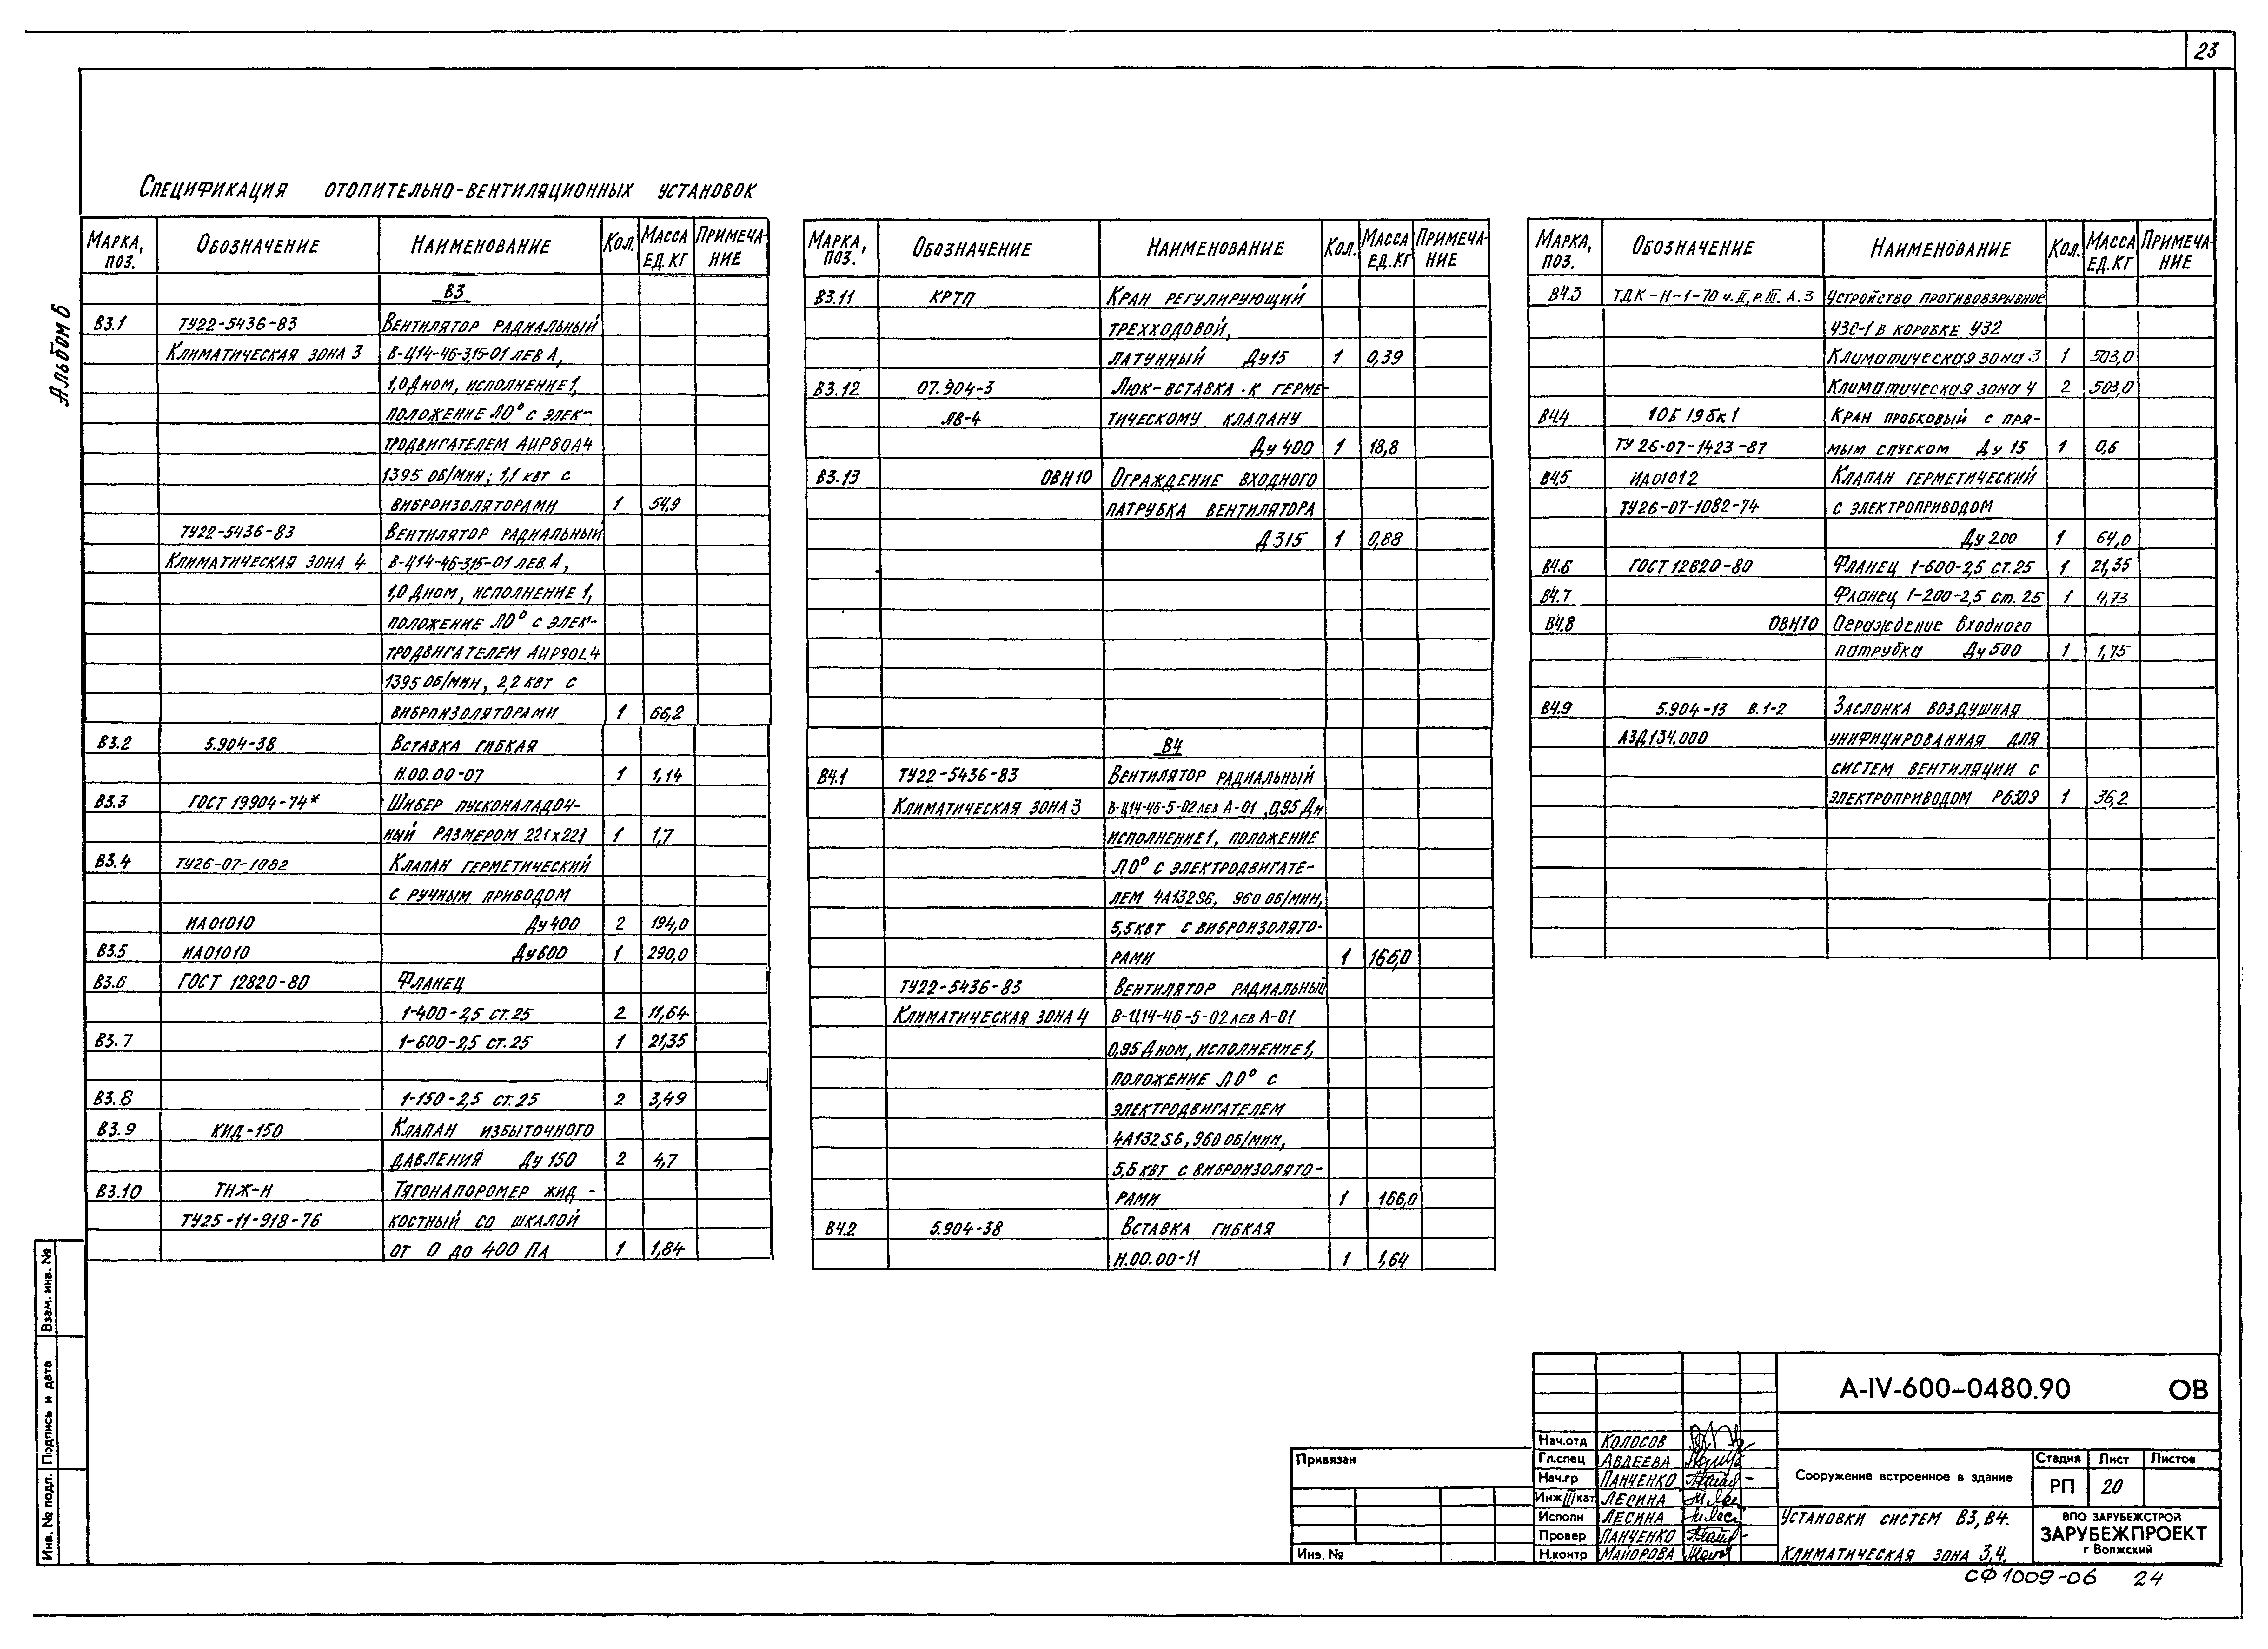 23
Альбом 6
Спецификация отопительно-вентиляционных установок
Марка, поз. Обозначение Наименование Кол. Масса ед.кг Примечание
В3
В3.1 ТУ22-5436-83 Вентилятор радиальный
Климатическая зона 3 В-Ц14-46-3,15-01 лев А,
1,0 Дном, исполнение 1,
положение Л0° с элек-
тродвигателем АИР80А4
1395 об/мин; 1,1 квт с
виброизоляторами 1 54,9
ТУ22-5436-83 Вентилятор радиальный
Климатическая зона 4 В-Ц14-46-3,15-01 лев. А,
1,0 Дном, исполнение 1,
положение Л0° с элек-
тродвигателем АИР90L4
1395 об/мин, 2,2 квт с
виброизоляторами 1 66,2
В3.2 5.904-38 Вставка гибкая
Н.00.00-07 1 1,14
В3.3 ГОСТ 19904-74* Шибер пусконаладоч-
ный размером 221х221 1 1,7
В3.4 ТУ26-07-1082 Клапан герметический
с ручным приводом
ИА01010 Ду 400 2 194,0
В3.5 ИА01010 Ду 600 1 290,0
В3.6 ГОСТ 12820-80 Фланец
1-400-2,5 ст.25 2 11,64
В3.7 1-600-2,5 ст.25 1 21,35
В3.8 1-150-2,5 ст.25 2 3,49
В3.9 КИД-150 Клапан избыточного
давления Ду 150 2 4,7
В3.10 ТНЖ-Н Тягонапоромер жид-
ТУ25-11-918-76 костный со шкалой
от 0 до 400 Па 1 1,84
Марка, поз. Обозначение Наименование Кол. Масса ед.кг Примечание
В3.11 КРТП Кран регулирующий
трехходовой,
латунный Ду 15 1 0,39
В3.12 07.904-3 Люк-вставка к герме-
ЛВ-4 тическому клапану
Ду 400 1 18,8
В3.13 ОВН10 Ограждение входного
патрубка вентилятора
Д 315 1 0,88
В4
В4.1 ТУ22-5436-83 Вентилятор радиальный
Климатическая зона 3 В-Ц14-46-5-02 лев А-01, 0,95 Дн
исполнение 1, положение
Л0° с электродвигате-
лем 4А132S6, 960 об/мин,
5,5 квт с виброизолято-
рами 1 166,0
ТУ22-5436-83 Вентилятор радиальный
Климатическая зона 4 В-Ц14-46-5-02 лев А-01
0,95 Дном, исполнение 1,
положение Л0° с
электродвигателем
4А132S6, 960 об/мин,
5,5 квт с виброизолято-
рами 1 166,0
В4.2 5.904-38 Вставка гибкая
Н.00.00-11 1 1,64
Марка, поз. Обозначение Наименование Кол. Масса ед.кг Примечание
В4.3 ТДК-Н-1-70 ч.II, р.III. А.3 Устройство противовзрывное
УЗС-1 в коробке УЗ2
Климатическая зона 3 1 503,0
Климатическая зона 4 2 503,0
В4.4 10Б19бк1 Кран пробковый с пря-
ТУ 26-07-1423-87 мым спуском Ду 15 1 0,6
В4.5 ИА01012 Клапан герметический
ТУ26-07-1082-74 с электроприводом
Ду 200 1 64,0
В4.6 ГОСТ 12820-80 Фланец 1-600-2,5 ст.25 1 21,35
В4.7 Фланец 1-200-2,5 ст.25 1 4,73
В4.8 ОВН10 Ограждение входного
патрубка Ду 500 1 1,75
В4.9 5.904-13 В.1-2 Заслонка воздушная
АЗД134.000 унифицированная для
систем вентиляции с
электроприводом Р630Э 1 36,2
Взам. инв. №
Подпись и дата
Инв. № подл.
Привязан
Инв. №
Нач.отд Колосов
Гл.спец Авдеева
Нач.гр Панченко
Инж III кат Лесина
Исполн Лесина
Провер Панченко
Н.контр Майорова
А-IV-600-0480.90 ОВ
Сооружение встроенное в здание
Стадия Лист Листов
РП 20
Установки систем В3, В4.
Климатическая зона 3,4.
ВПО ЗАРУБЕЖСТРОЙ
ЗАРУБЕЖПРОЕКТ
г Волжский
СФ1009-06 24